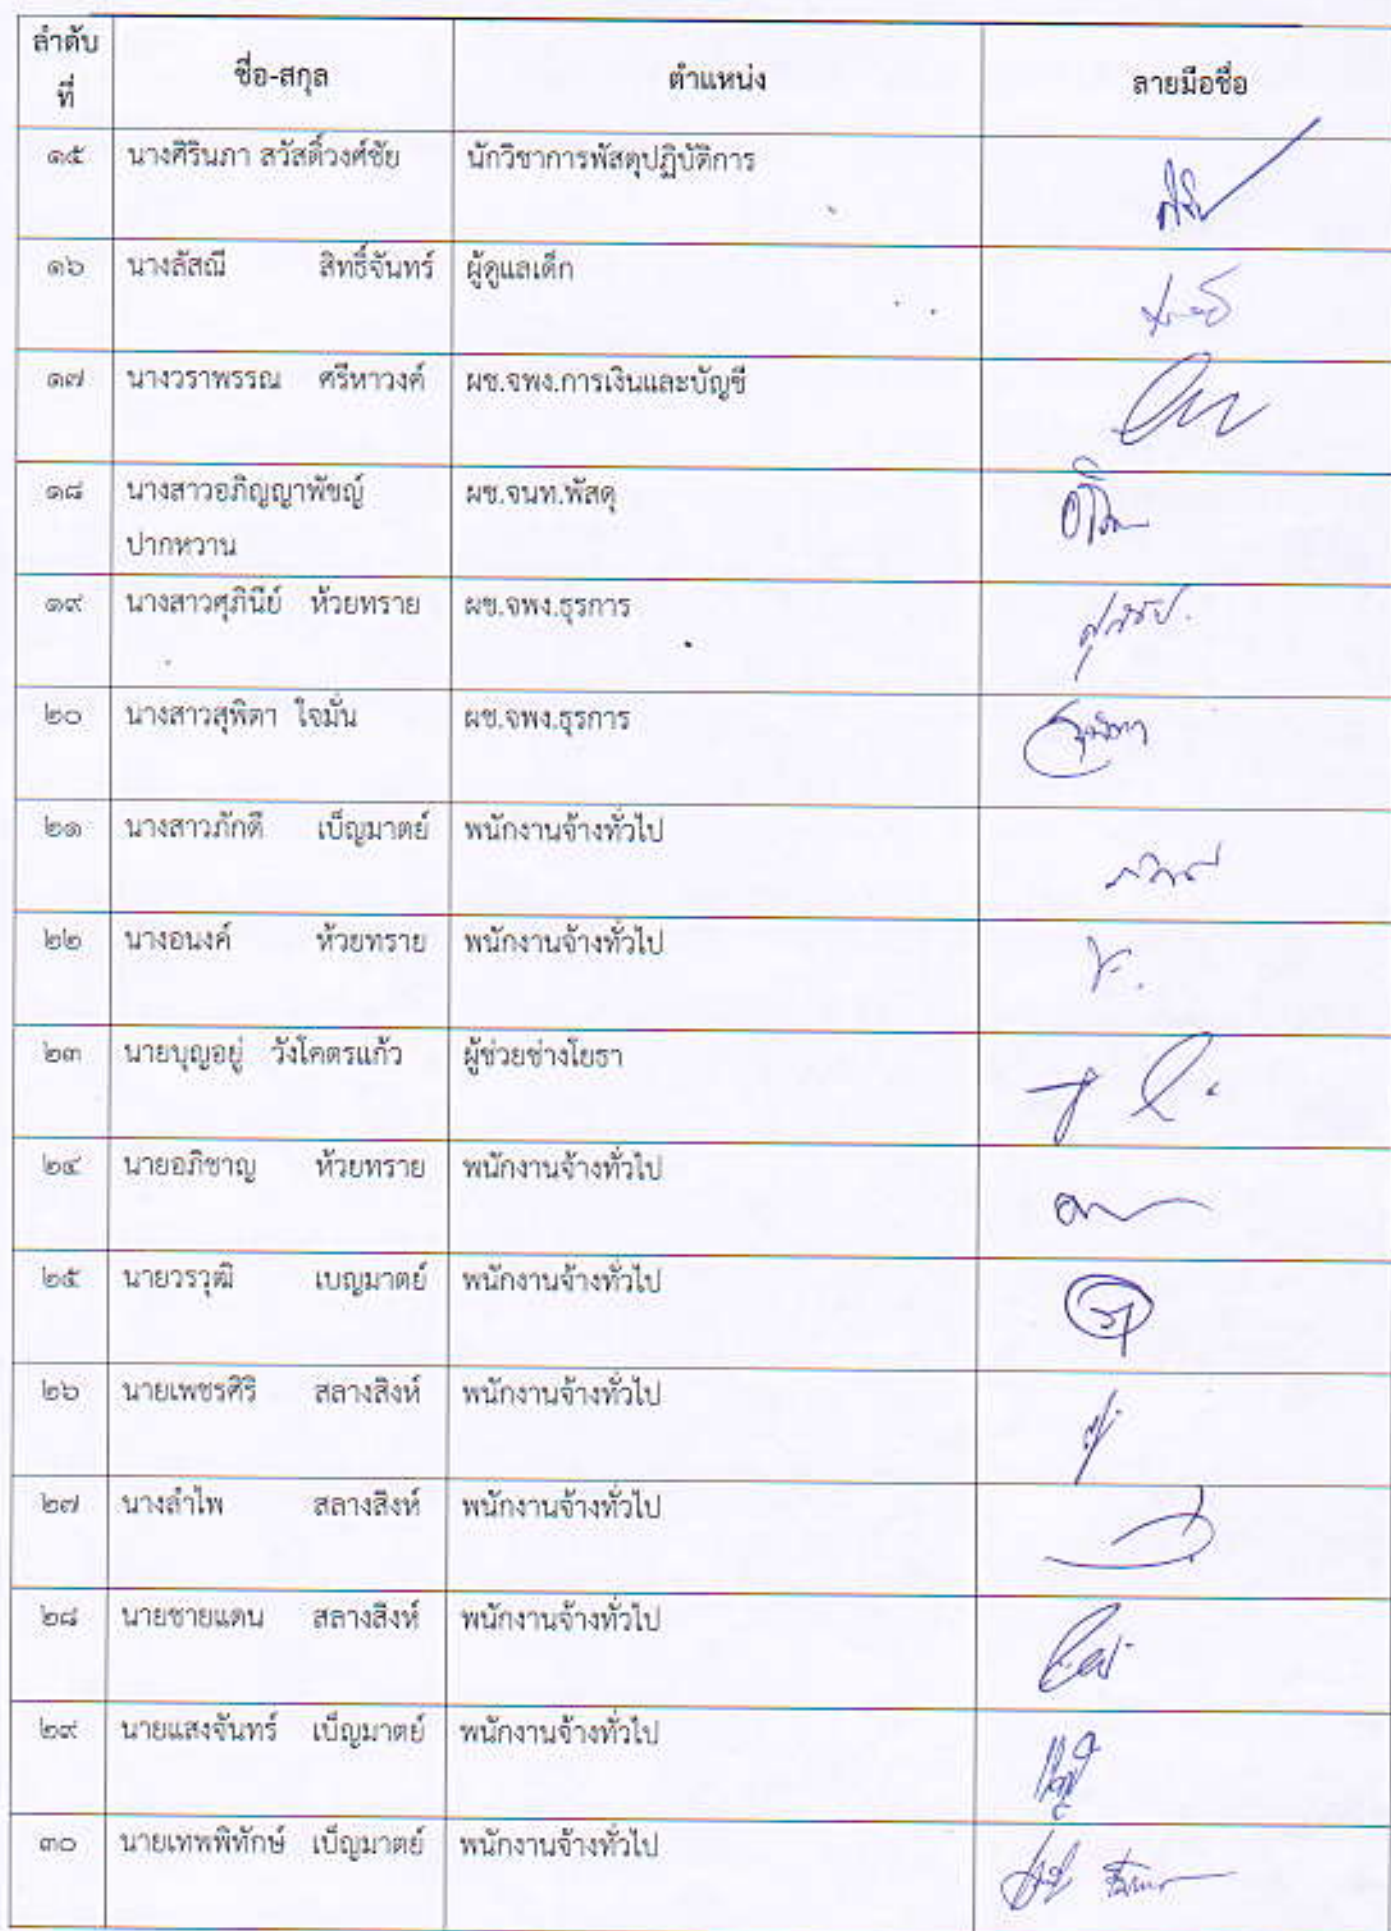 ลำดับ
ที่
ชื่อ-สกุล ตำแหน่ง ลายมือชื่อ
๑๕ นางศิรินภา สวัสดิ์วงศ์ชัย นักวิชาการพัสดุปฏิบัติการ
๑๖ นางลัสณี สิทธิ์จันทร์ ผู้ดูแลเด็ก
๑๗ นางวราพรรณ ศรีหาวงค์ ผช.จพง.การเงินและบัญชี
๑๘ นางสาวอภิญญาพัชญ์ ผช.จนท.พัสดุ
ปากหวาน
๑๙ นางสาวศุภินีย์ ห้วยทราย ผช.จพง.ธุรการ
๒๐ นางสาวสุพิตา ใจมั่น ผช.จพง.ธุรการ
๒๑ นางสาวภักดี เบ็ญมาตย์ พนักงานจ้างทั่วไป
๒๒ นางอนงค์ ห้วยทราย พนักงานจ้างทั่วไป
๒๓ นายบุญอยู่ วังโคตรแก้ว ผู้ช่วยช่างโยธา
๒๔ นายอภิชาญ ห้วยทราย พนักงานจ้างทั่วไป
๒๕ นายวรวุฒิ เบญมาตย์ พนักงานจ้างทั่วไป
๒๖ นายเพชรศิริ สลางสิงห์ พนักงานจ้างทั่วไป
๒๗ นางลำไพ สลางสิงห์ พนักงานจ้างทั่วไป
๒๘ นายชายแดน สลางสิงห์ พนักงานจ้างทั่วไป
๒๙ นายแสงจันทร์ เบ็ญมาตย์ พนักงานจ้างทั่วไป
๓๐ นายเทพพิทักษ์ เบ็ญมาตย์ พนักงานจ้างทั่วไป